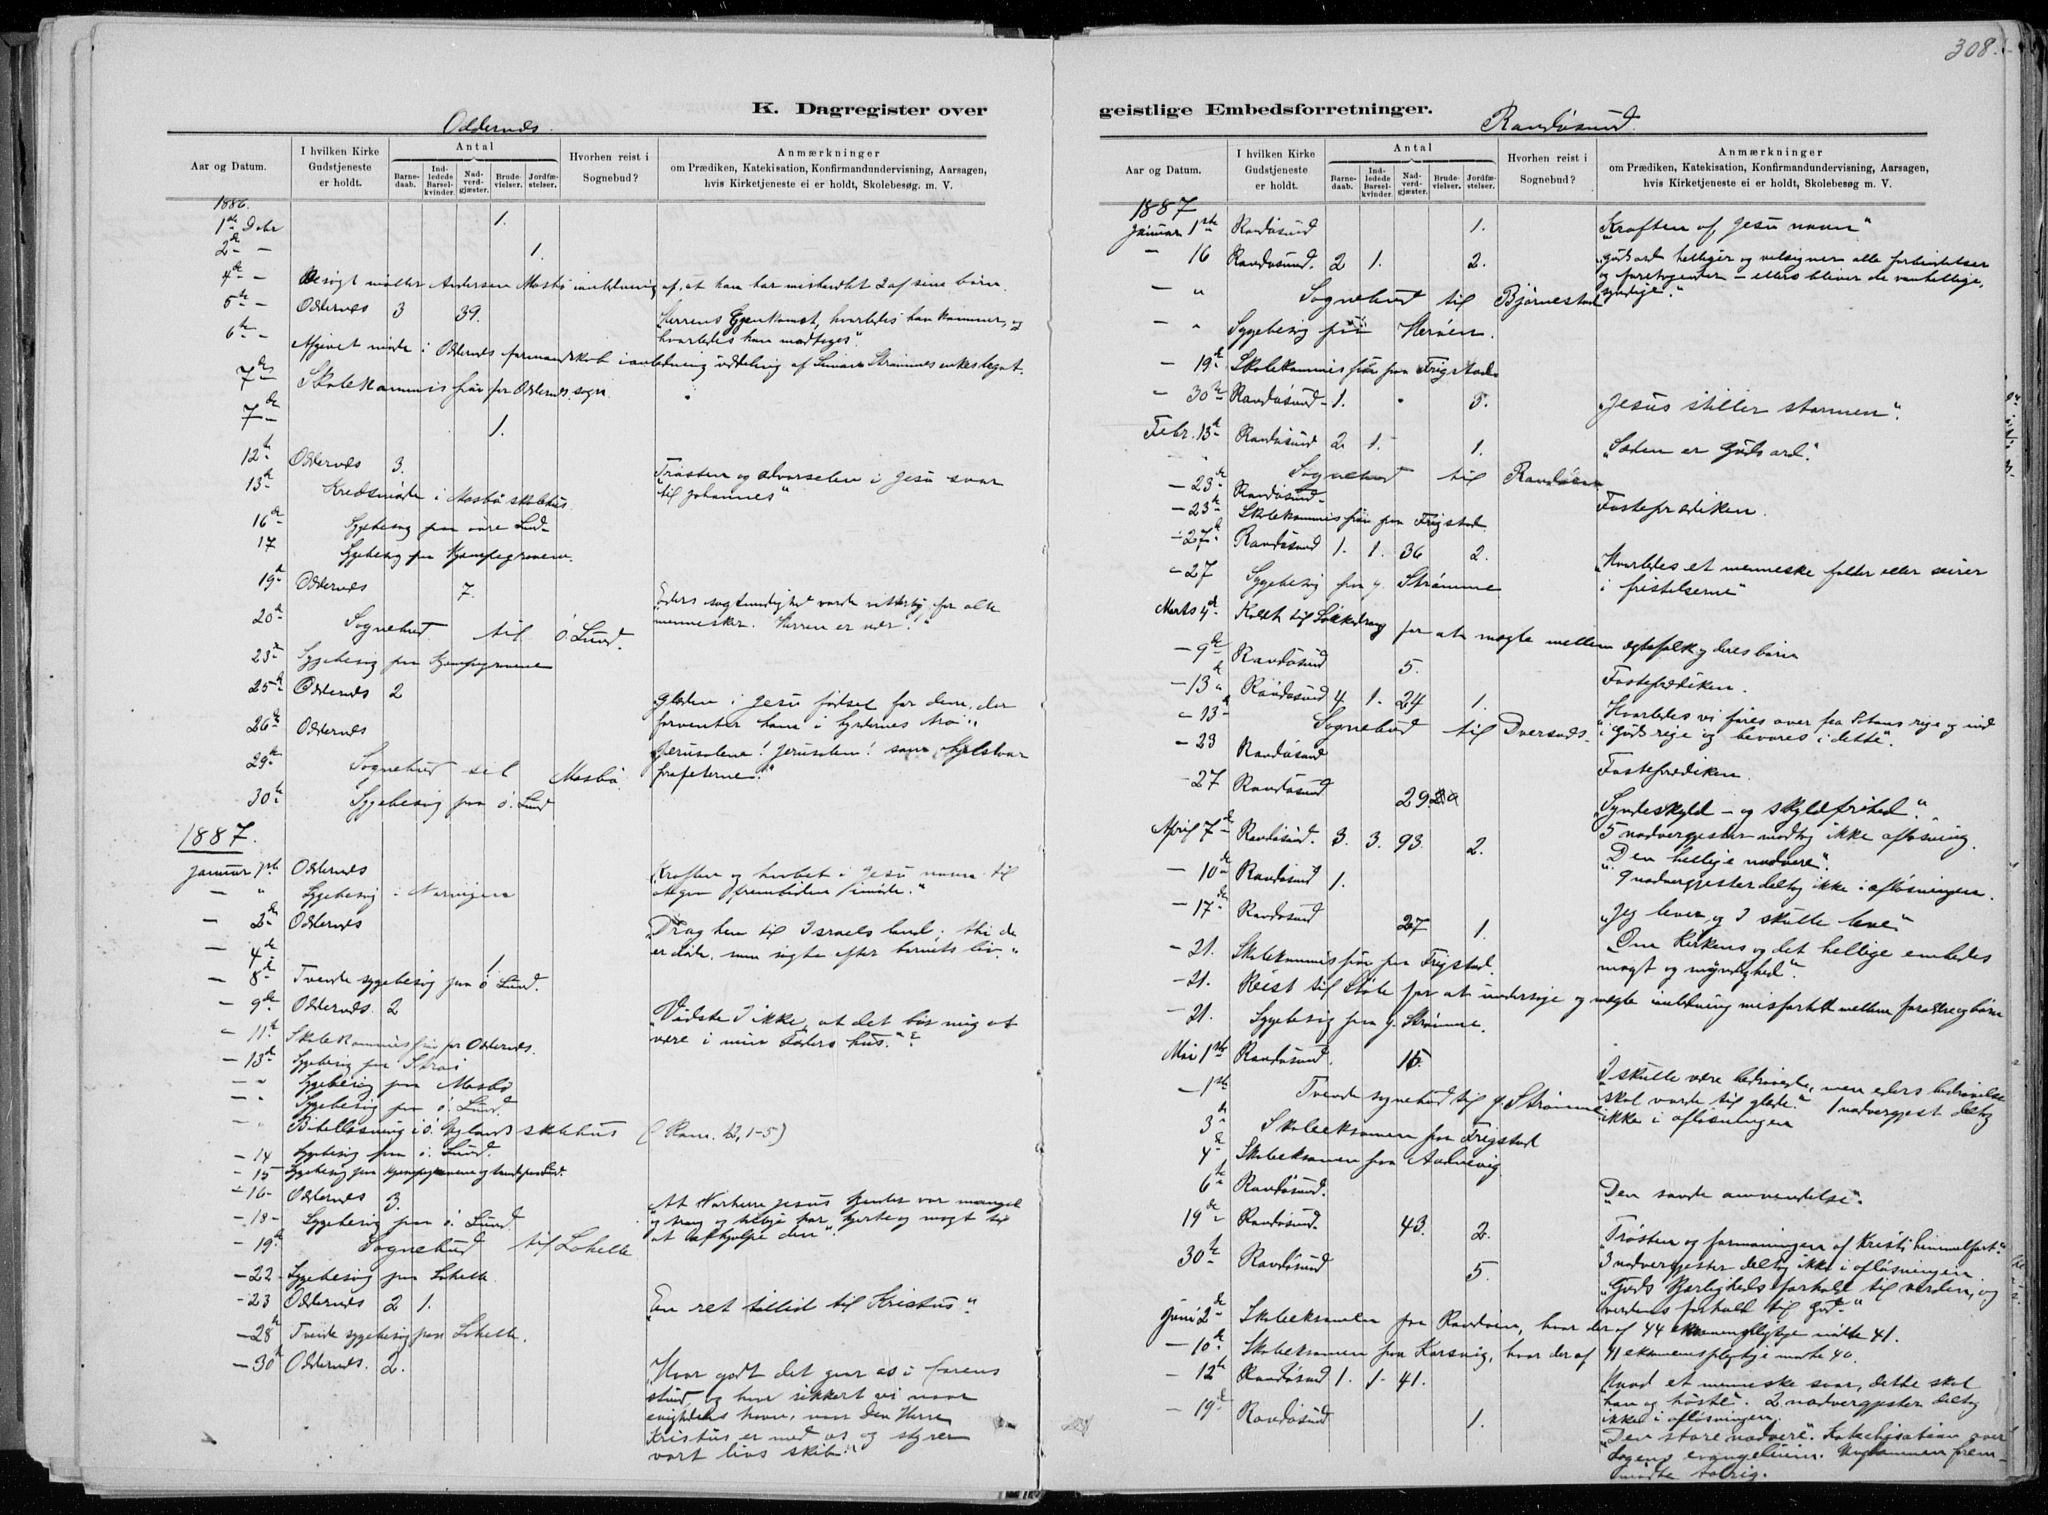 308.
K. Dagregister over
Oddernes.
Aar og Datum.
I hvilken Kirke Gudstjeneste er holdt.
Antal
Barne-daab.
Ind-ledede Barsel-kvinder.
Nad-verd-gjester.
Brude-vielser.
Jordfæ-stelser.
Hvorhen reist i Sognebud?
Anmærkninger
om Prædiken, Katekisation, Konfirmandundervisning, Aarsagen,
hvis Kirketjeneste ei er holdt, Skolebesøg m. V.
1886.
1ste Debr 1.
2de — 1.
4de — Besøgt møller Andersen Mosbø i anledning af, at han har mishandlet 2 af sine børn.
5te — Oddernes 3 39. "Herrens Gjenkomst, hvorledes han kommer, og
hvorledes han modtages".
6te — Afgivet møde i Oddernes formandskab i anledning uddeling af Strømmes enkelegat.
7de — Skolekommisjon for Oddernes sogn.
7de — 1.
12te Oddernes 3. "Trøsten og alvorselen i Jesu svar
til Johannes"
13de Kredsmøde i Mosbø skolehus.
16de Sygebesøg paa Lund
17 Sygebesøg paa Kjempegravene.
19de Oddernes 7. "Eders sagtmodighed vorde vitterlig for alle
mennesker. Herren er nær."
20de Sognebud til ö. Lund.
23de Sygebesøg paa Kjempegravene
25de Oddernes 2 Glæden i Jesu fødsel for dem, der
forventer ham i hyrdernes tro."
26de Oddernes "Jerusalem! Jerusalem! som ihjelslaar
profeterne!"
29de Sognebud til Mosbø.
30te Sygebesøg paa ö. Lund
1887.
Januar 1ste Oddernes "Kraften og haabet i Jesu navn til
at gaa fremtiden imøde."
— " Sygebesøg i Narvigen
— 2den Oddernes "Drag hen til Israels land; thi de
er døde, som søgte efter barnets liv."
— 4de 1.
— 8de Tvende sygebesøg paa ö Lund.
— 9de Oddernes 2 "Vidste I ikke, at det bör mig at
være i min Faders hus."?
— 11te Skolekommisjon for Oddernes.
— 13de Sygebesøg paa Strai
— " Sygebesøg paa Mosbø
— " Sygebesøg paa ö. Lund
— " Bibellæsning i ö. Uglands skolehus (Rom. 12, 1-5)
— 14 Sygebesøg paa ö. Lund.
— 15 Sygebesøg paa Kjempegravene og Lund.
— 16 Oddernes 3. "At Vorherre Jesus kjender vor mangel
og trang og tillige har hjerte og magt til
at afhjelpe den".
— 18 Sygebesøg paa ö. Lund.
— 19de Sognebud til Lohelle
— 22 Sygebesøg paa Lohelle.
— 23 Oddernes 2 1. "En ret tillid til Kristus".
— 28de Tvende sygebesøg paa Lohelle.
— 30te Oddernes. 2. "Hvor godt det gaar os i farens
stund, og hvor sikkert vi naar
evighedens havn, naar den Herre
Kristus er med os og styrer
vort livs skib."
geistlige Embedsforretninger.
Randøsund.
Aar og Datum.
I hvilken Kirke Gudstjeneste er holdt.
Antal
Barne-daab.
Ind-ledede Barsel-kvinder.
Nad-verd-gjæster.
Brude-vielser.
Jordfæ-stelser.
Hvorhen reist i Sognebud?
Anmærkninger
om Prædiken, Katekisation, Konfirmandundervisning, Aarsagen,
hvis Kirketjeneste ei er holdt, Skolebesøg m. V.
1887
Januar 1ste Randøsund 1. "Kraften af Jesu navn"
— 16 Randøsund. 2 1. 2. "Guds ord helliger og velsigner alle forbindelser
og foretagender — ellers bliver de vanhellige,
syndige."
— " Sognebud til Bjørnestad
— " Sygebesøg paa Herøen.
— 19de Skolekommisjon paa Frigstad.
— 30te Randøsund 1. 5. "Jesus stiller stormen".
Febr. 13de Randøsund 2 1. 1. "Sæden er Guds ord."
— 23de Sognebud til Randøen
— 23de Randøsund. Fasteprædiken.
Skolekommisjon paa Frigstad
— 27de Randøsund 1. 1. 36 2. "Hvorledes et menneske falder eller seirer
i fristelserne"
— 27 Sygebesøg paa y. Strømme
Marts 4de Kaldt til Løkkedrag for at mægle mellem egtefolk og deres børn
— 9de Randøsund 5. Fasteprædiken.
— 13de Randøsund 4 1. 24 1. "Hvorledes vi føres over fra Satans rige og ind
i Guds rige og bevares i dette".
— 13de Sognebud til Dversnes.
— 23 Randøsund Fasteprædiken.
— 27 Randøsund 29 "Syndeskyld — og skyldfrihed".
5 nadvergjester modtog ikke afløsning.
April 7de Randøsund. 3. 3. 93. 2. "Den hellige nadvere".
9 nadvergjester deltog ikke i afløsningen.
— 10de Randøsund 1. "Jeg lever, og I skulle leve"
— 17de Randøsund 27 1. "Om Kirkens og det hellige embedes
magt og myndighed".
— 21. Skolekommisjon paa Frigstad.
— 21. Reist til Støle for at undersøge og mægle i anledning misforhold mellem forældre og børn
— 21. Sygebesøg paa y. Strømme.
Mai 1ste Randøsund. 15. "I skulle være bedrøvede, men eders bedrøvelse
skal vorde til glæde." 1 nadvergjest deltog
ikke i afløsningen
— 1ste Tvende sognebud til y. Strømme
3de Skoleeksamen paa Frigstad
4de Skoleeksamen paa Aalevig
6te Randøsund. "Den sande omvendelse".
19de Randøsund. 43. 2. "Trøsten og formaningen af Kristi himmelfart".
3 nadvergjester deltog ikke i afløsningen
30te Randøsund 5. "Guds Kjærligheds forhold til verden, og
verdens forhold til Gud."
Juni 2de Skoleeksamen paa Randøen, hvor der af 44 eksamenspligtige mötte 41.
— 10de Skoleeksamen paa Korsvig, hvor der af 41 eksamenspligtige mötte 40.
— 12te Randøsund 1. 1. 41. "Hvad et menneske saar, dette skal
han og höste". 2 nadvergjester deltog
ikke i afløsningen.
— 19de Randøsund 1. "Den store nadvere". Katechisation over
dagens evangelium. Ungdommen frem-
mödte talrig.